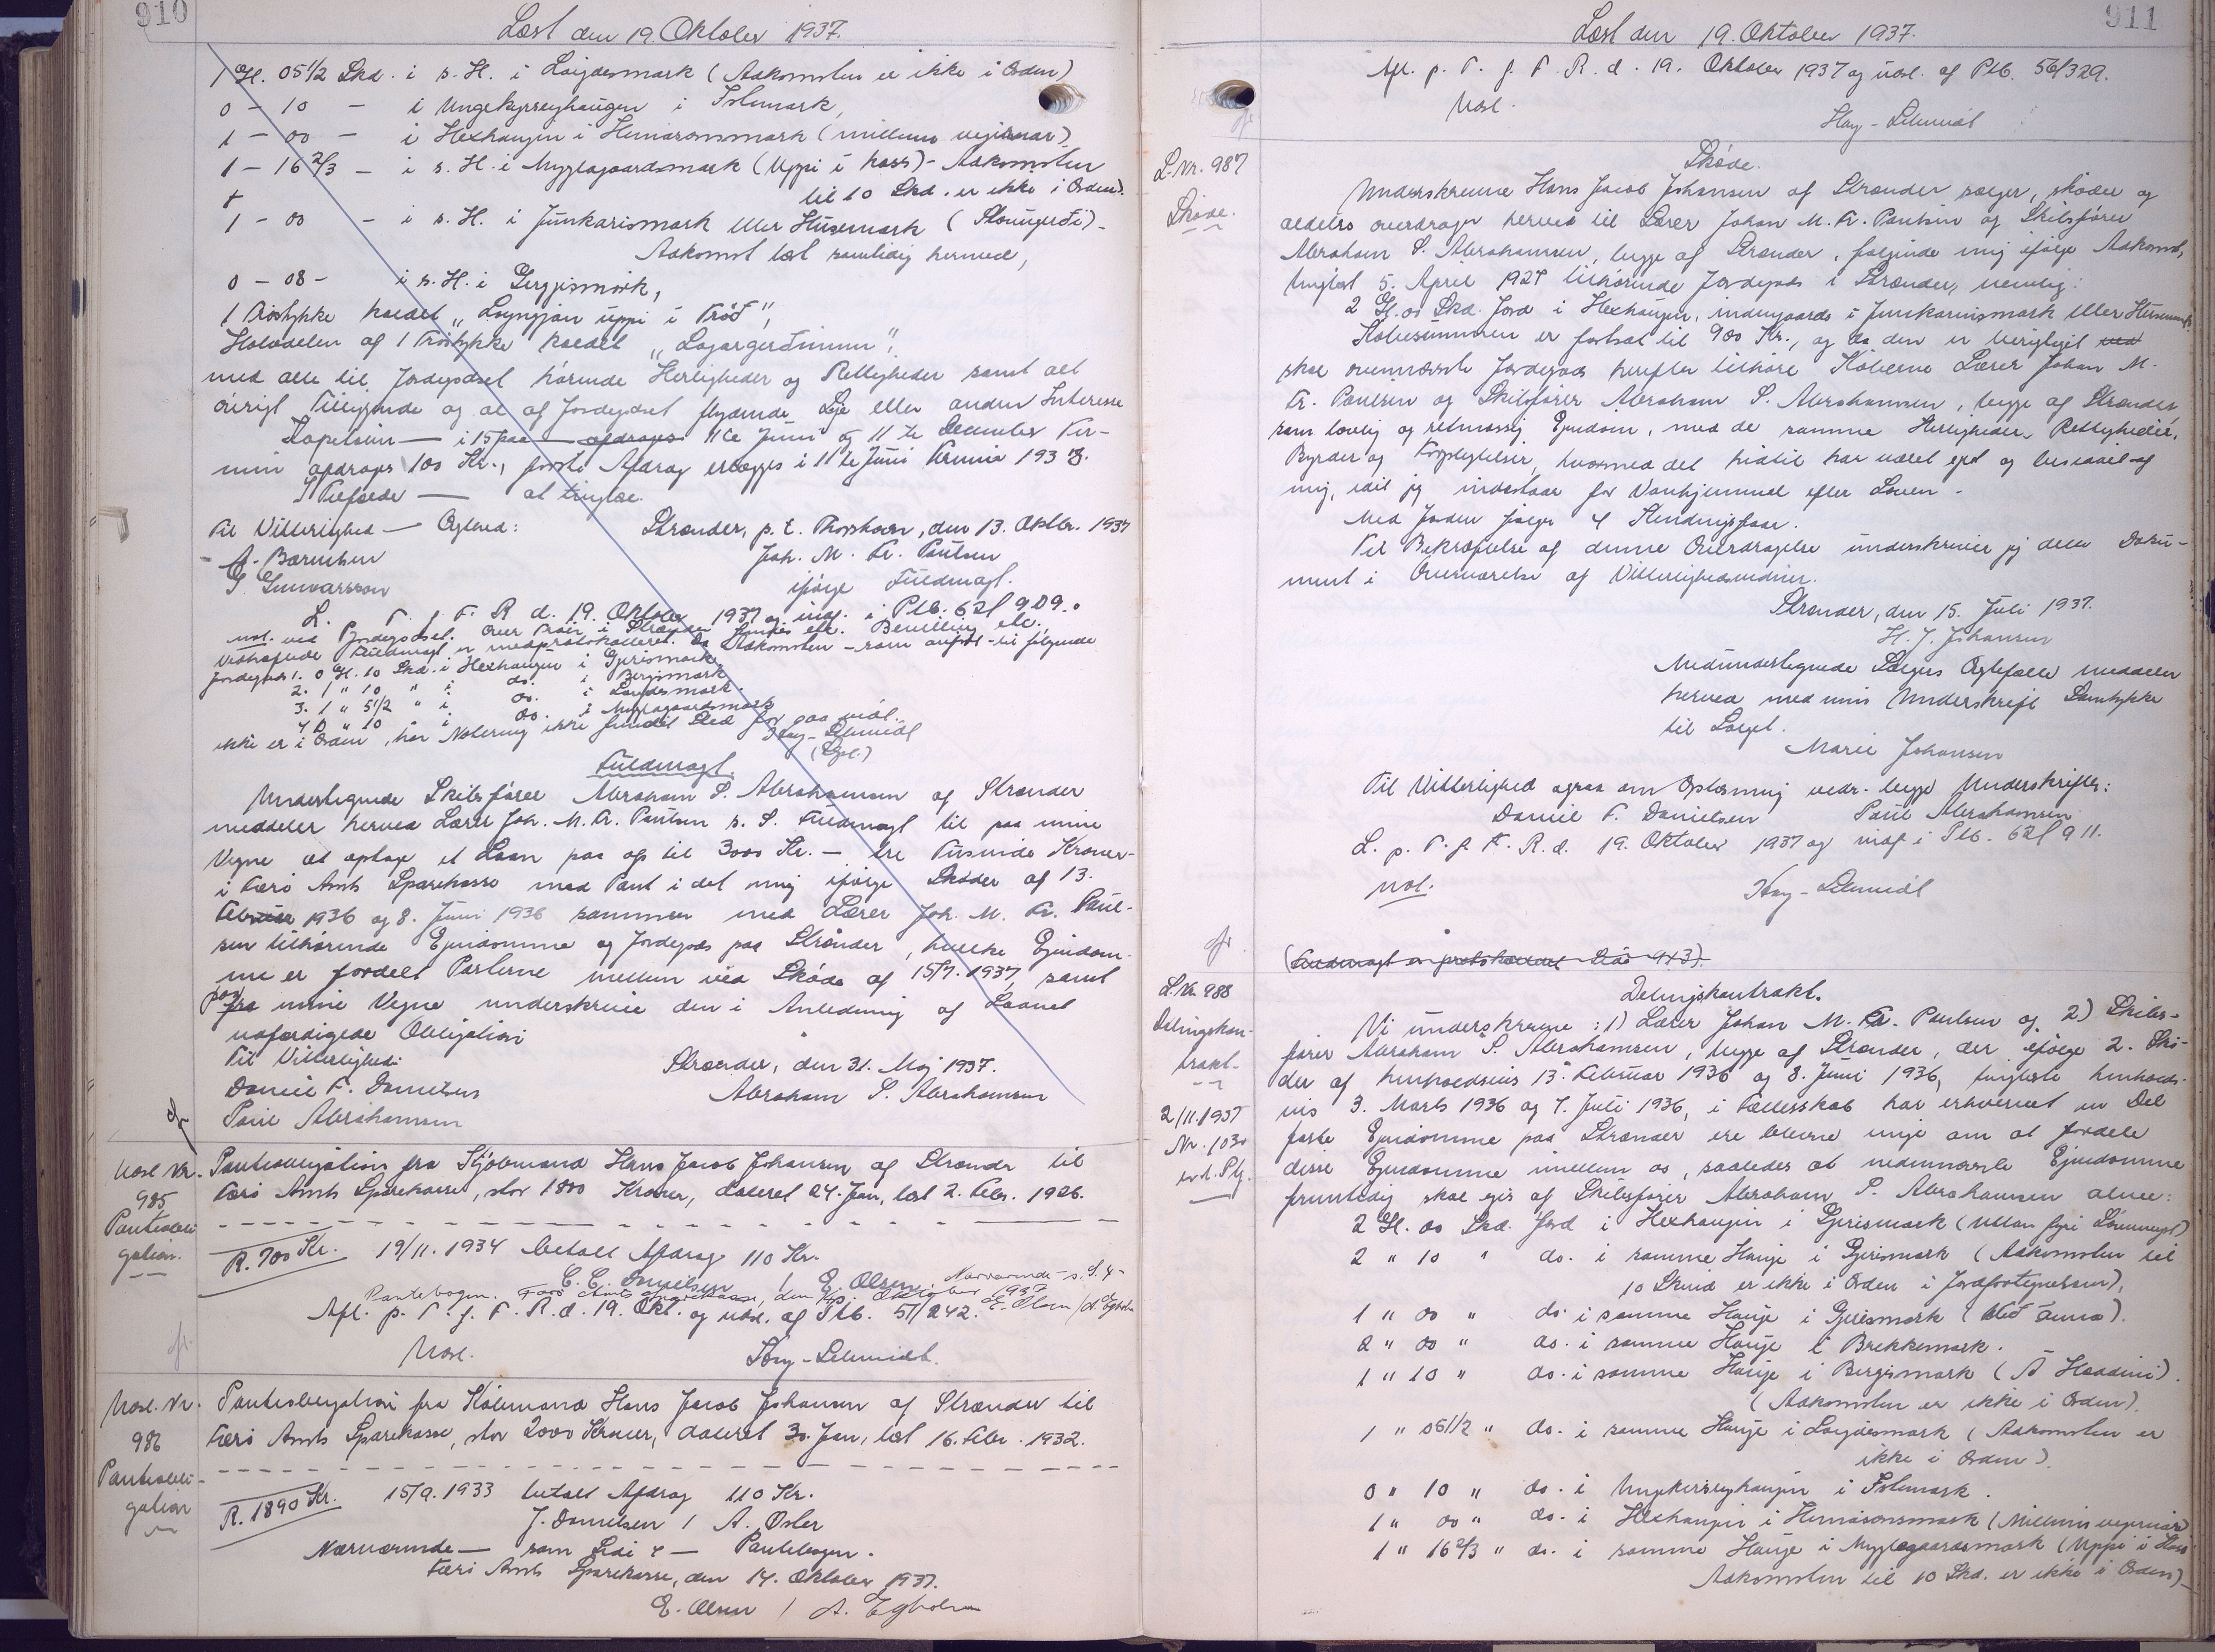 910
Læst den 19. Oktober 1937.
1 Gl. 05 1/2 Skd. i s. H. i Loigdesmark (Adkomsten er ikke i Orden)
0 - 10 - i Ungekyrreyhaugen i Islemark,
1 - 00 - i Hexhaugen i Hemarsonsmark (millum vegirnar)
1 - 16 2/3 - i s. H. i Myglagaardsmark (Uppi i hass) - Adkomsten
til 10 Skd. er ikke i Orden).
1 - 00 - i s. H. i Junkarismark eller Húsamark -
Adkomst læst samtidig hermed,
0 - 08 - i s. H. i Gerysmørk,
1 Trøstykke kaldet "Loyngjan uppi í Trøð",
Halvdelen af 1 Trøstykke kaldet "Lojargerðinum",
med alle til Jordegodset hørende Herligheder og Rettigheder samt alt
øvrigt Tilliggende og al af Jordegodset flydende Leje eller anden Interesse
Kapitalen — i 15 paa — afdrages 11te Juni og 11te December Ter-
min afdrages 100 Kr., første Afdrag erlægges i 11te Juni Termin 1938.
I Tilfælde — at tinglæse.
Til Vitterlighed — Ægthed: Strænder, p. t. Thorshavn, den 13. Oktbr. 1937
A. Bærentsen Joh. M. Fr. Poulsen
G. Gunnarsson ifølge Fuldmagt.
L. p. T. f. F. R. d. 19. Oktober 1937 og indf. i Ptb. 62 f 909.
Jordegods 1. 0 Gl. 10 Skd. i Hexhaugen i Gerismark
2. 1 " 10 " i do. i Bergsmark
3. 1 " 5 1/2 " i do. i Loigdesmark
4. 0 " 10 " i do. i Myglagaardsmark
ikke er i Orden, har Notering ikke fundet Sted for saa vidt.
Hay-Schmidt
Fuldmagt.
Undertegnede Skibsfører Abraham S. Abrahamsen af Strænder
meddeler herved Lærer Joh. M. Fr. Poulsen s. S. Fuldmagt til paa mine
Vegne at optage et Laan paa op til 3000 Kr. - tre Tusinde Kroner -
i Færø Amts Sparekasse med Pant i det mig ifølge Skøder af 13.
Februar 1936 og 8. Juni 1936 sammen med Lærer Joh. M. Fr. Poul-
sen tilhørende Ejendomme og Jordegods paa Strænder, hvilke Ejendom-
me er fordelt Parterne mellem ved Skøde af 15/7. 1937, samt
paa mine Vegne underskrive den i Anledning af Laanet
udfærdigede Obligation
Til Vitterlighed: Strænder, den 31. Maj 1937.
Daniel F. Danielsen Abraham S. Abrahamsen
Poul Abrahamsen
Udsl. Nr. 985 Pantobli-gation.
Pantobligation fra Købmand Hans Jacob Johansen af Strænder til
Færø Amts Sparekasse, stor 1800 Kroner, dateret 24. Jan., læst 2. Febr. 1926.
R. 700 Kr. 19/11. 1934 betalt Afdrag 110 Kr.
C. C. Danielsen / E. Olsen. Nærværende - s. S. 4 -
Pantebogen. Færø Amts Sparekasse, den 14. Oktober 1937 E. Olsen / A. Egholm
Afl. p. T. f. F. R. d. 19. Okt. og udsl. af Ptb. 51/242.
Udsl. Hay-Schmidt.
Udsl. Nr. 986 Pantobli-gation
Pantobligation fra Købmand Hans Jacob Johansen af Strænder til
Færø Amts Sparekasse, stor 2000 Kroner, dateret 30. Jan., læst 16. Febr. 1932.
R. 1890 Kr. 15/9. 1933 betalt Afdrag 110 Kr.
J. Danielsen / A. Øster
Nærværende — som Side 4 — Pantebogen.
Færø Amts Sparekasse, den 14. Oktober 1937.
E. Olsen / A. Egholm
911
Læst den 19. Oktober 1937.
Afl. p. T. f. F. R. d. 19. Oktober 1937 og udsl. af Ptb. 56/329.
Udsl.
Hay-Schmidt
L. Nr. 987
Skøde.
Skøde.
Underskrevne Hans Jacob Johansen af Strænder sælger, skøder og
aldeles overdrager herved til Lærer Johan M. Fr. Poulsen og Skibsfører
Abraham S. Abrahamsen, begge af Strænder, følgende mig ifølge Adkomst,
tinglæst 5. April 1927 tilhørende Jordegods i Strænder, nemlig:
2 Gl. 00 Skd. Jord i Hexhaugen, indengaards i Junkarismark eller Húsamark.
Købesummen er fastsat til 900 Kr., og da den er berigtiget
skal ovennævnte Jordegods herefter tilhøre Køberne Lærer Johan M.
Fr. Poulsen og Skibsfører Abraham S. Abrahamsen, begge af Strænder,
som lovlig og retmæssig Ejendom, med de samme Herligheder, Rettigheder,
Byrder og Forpligtelser, hvormed det hidtil har været ejet og besiddet af
mig, idet jeg indestaar for Vanhjemmel efter Loven.
Med Jorden følger 4 Stendingsfaar.
Til Bekræftelse af denne Overdragelse underskriver jeg dette Doku-
ment i Overværelse af Vitterlighedsvidner.
Strænder, den 15. Juli 1937.
H. J. Johansen
Medundertegnede Sælgers Ægtefælle meddeler
herved med min Underskrift Samtykke
til Salget.
Marie Johansen
Til Vitterlighed ogsaa om Oplæsning vedr. begge Underskrifter:
Daniel F. Danielsen Poul Abrahamsen
L. p. T. f. F. R. d. 19. Oktober 1937 og indf. i Ptb. 62 f 911.
not. Hay-Schmidt
(Fuldmagt er protokolleret Side 943).
L. Nr. 988
Delingskon-
trakt.
2/11 1937
Nr. 1030
Delingskontrakt.
Vi underskrevne: 1) Lærer Johan M. Fr. Poulsen og 2) Skibs-
fører Abraham S. Abrahamsen, begge af Strænder, der ifølge 2. Skø-
der af henholdsvis 13. Februar 1936 og 8. Juni 1936, tinglæste henholds-
vis 3. Marts 1936 og 7. Juli 1936, i Fællesskab har erhvervet en Del
faste Ejendomme paa Strænder ere blevne enige om at fordele
disse Ejendomme imellem os, saaledes at nedennævnte Ejendomme
fremtidig skal ejes af Skibsfører Abraham S. Abrahamsen alene:
2 Gl. 00 Skd. Jord i Hexhaugen i Gerismark
2 " 10 " do. i samme Hauge i Gerismark (Adkomsten til
10 Skind er ikke i Orden i Jordfortegnelsen),
1 " 00 " do. i samme Hauge i Gerismark (Við ánna).
2 " 00 " do. i samme Hauge i Brekkemark.
1 " 10 " do. i samme Hauge i Bergsmark
(Adkomsten er ikke i Orden).
1 " 05 1/2 " do. i samme Hauge i Loigdesmark (Adkomsten er
ikke i Orden).
0 " 10 " do. i Ungekirreyhaugen i Islemark.
1 " 00 " do. i Hexhaugen i Hemarsonsmark (Millum vegirnar)
1 " 16 2/3 " do. i samme Hauge i Myglagaardsmark (Uppi i Hass
Adkomsten til 10 Skd. er ikke i Orden) -